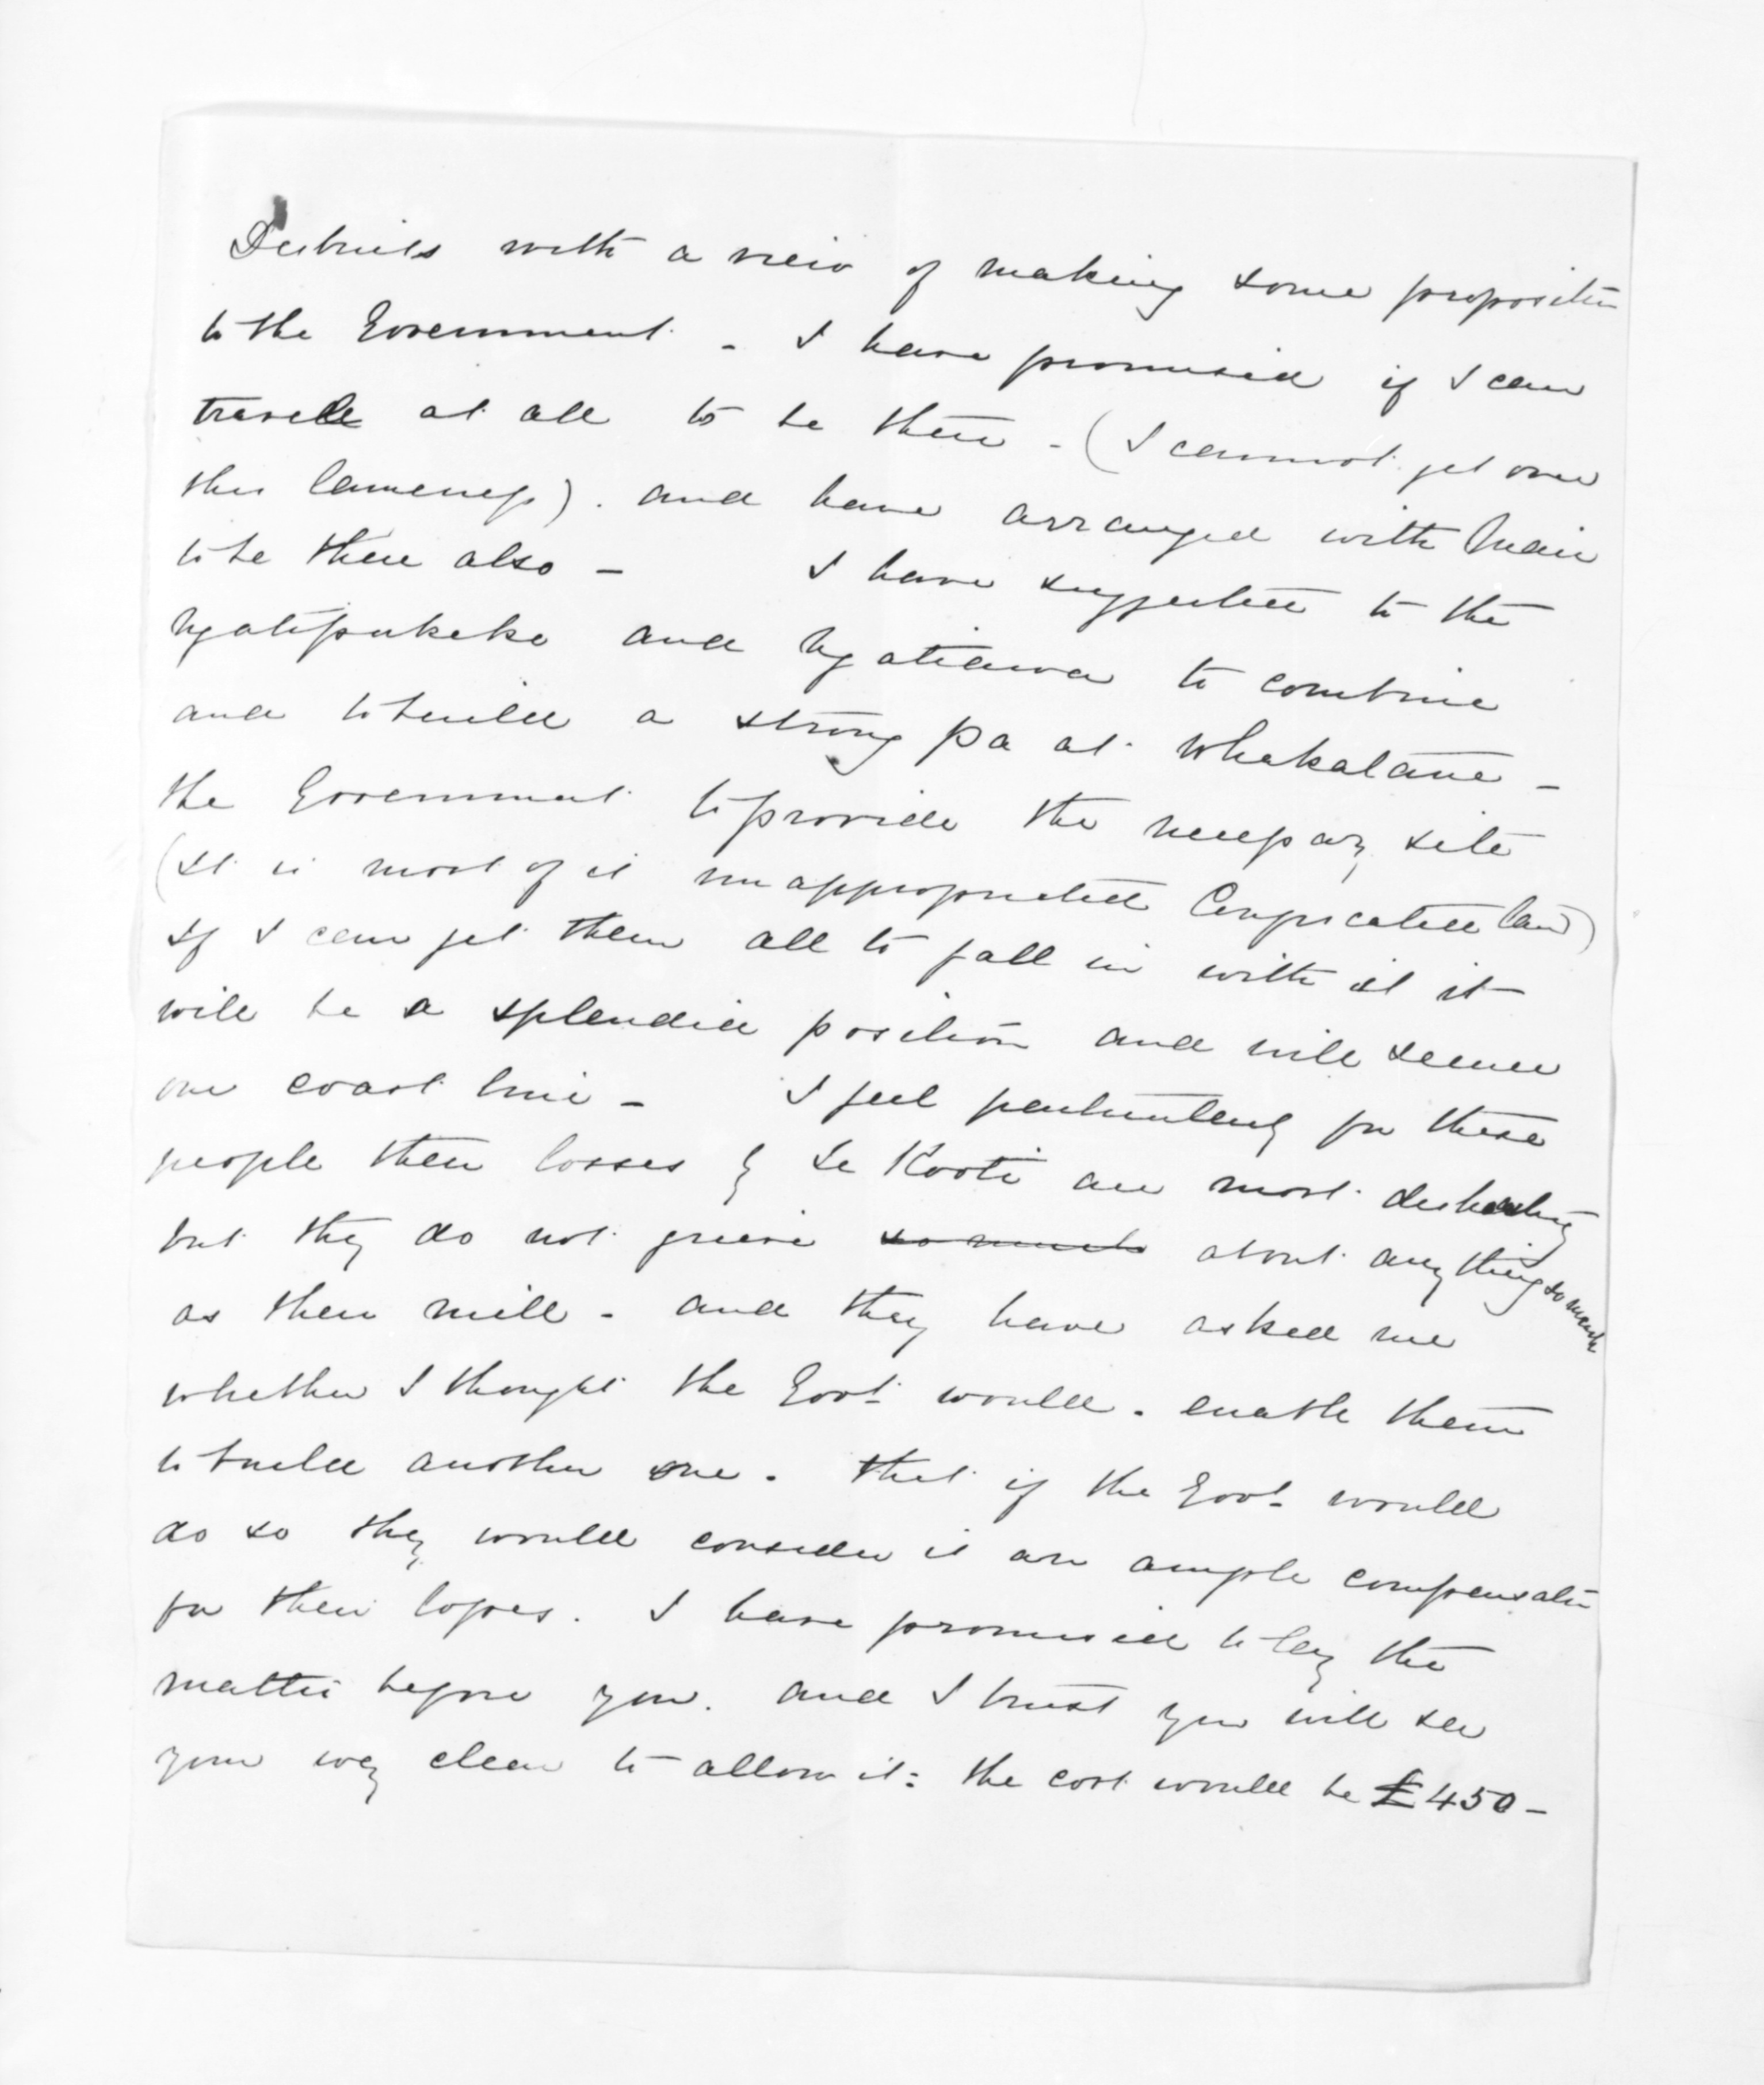 Districts with a view of making some proposition
to the Government - I have promised if I can
travell at all to be there - (I cannot get over
this lameness). and have arranged with Mair
to be there also - I have suggested to the
Ngatipukeko and Ngatiawa to combine
and to build a strong pa at Whakatane -
the Government to provide the necessary site
(It is most of it unappropriated Confiscated land)
If I can get them all to fall in with it it
will be a splendid position and will secure
our coast line - I feel particularly for these
people their losses by Te Kooti are most disheartening
but they do not grieve so much about any thing so much
as their mill - and they have asked me
whether I thought the Govt would. enable them
to build another one. that if the Govt would
do so they would consider it an ample compensation
for their losses. I have promised to lay the
matter before you. and I trust you will see
your way clear to allow it: the cost would be £450 -